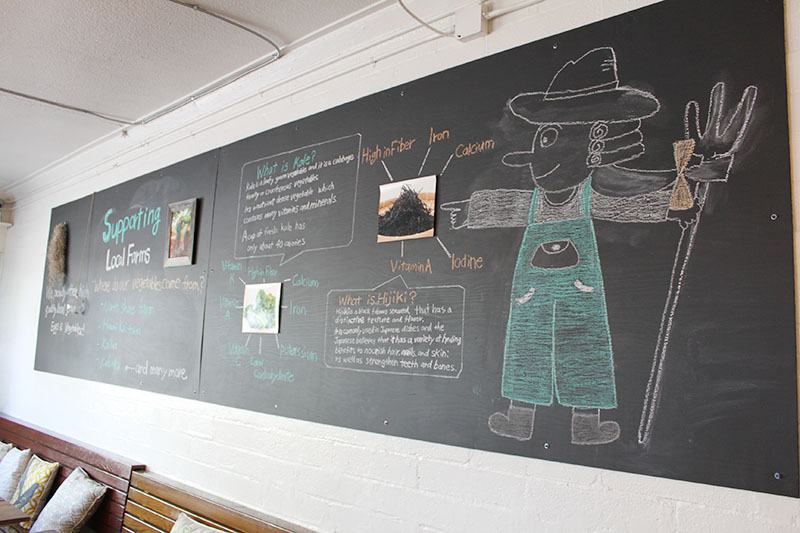 Supporting
Local Farms
"Where do our vegetables come from?"
- North Shore
- Kailua
and many more
Eggs & Vegetables!
What is Kale?
Kale is a leafy green vegetable and it is a cabbage
family or cruciferous vegetables
It's a nutrient dense vegetable which
contains many vitamins and minerals
A cup of fresh kale has
only about 40 calories
Vitamin
K
High in Fiber
Calcium
Vitamin
A
Iron
Vitamin
C
Low
Carbohydrate
Potassium
High in Fiber
Iron
Calcium
Vitamin A
Iodine
What is Hijiki?
Hijiki is a black brown seaweed that has a
distinctive texture and flavor.
It is commonly used in Japanese dishes and the
Japanese believes that it has a variety of healing
benefits to nourish hair, nails, and skin;
as well as strengthen teeth and bones.